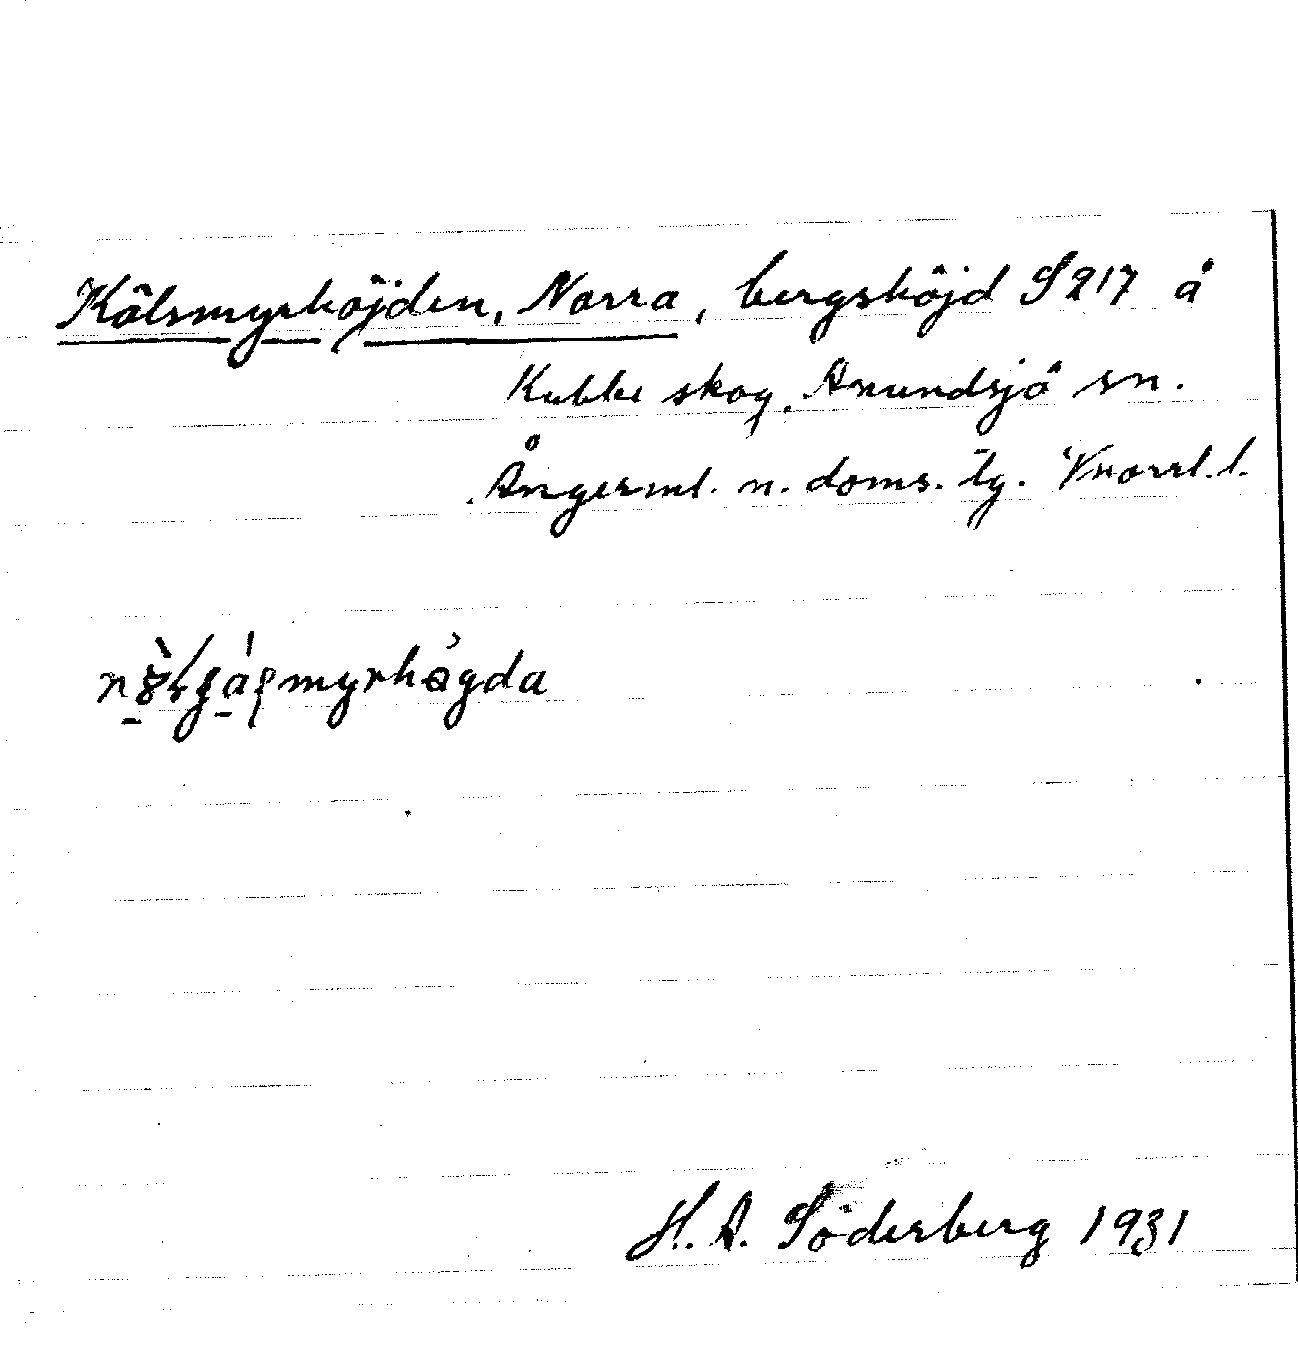 Kålsmyrhöjden, Norra, bergshöjd S217 å
Kubbe skog, Anundsjö sn.
Ångerml. n. doms. tg. Vnorrl. l.
H. A. Söderberg 1931